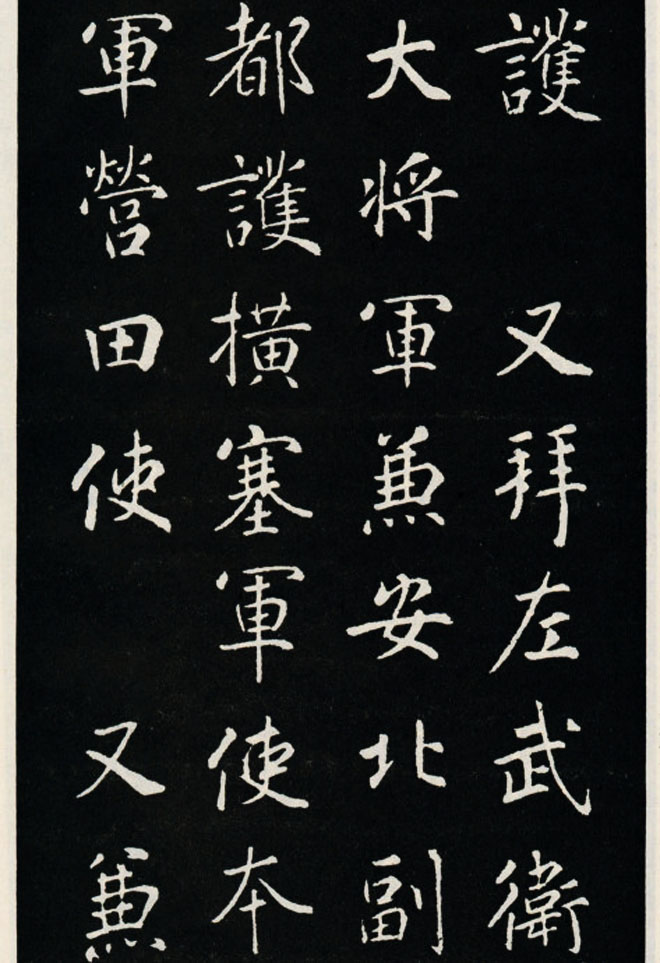 護 又拜左武衛
大将軍兼安北副
都護橫塞軍使本
軍營田使 又兼